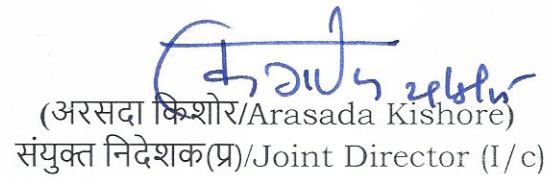 (अरसदा किशोर/Arasada Kishore)
संयुक्त निदेशक(प्र)/Joint Director (I/c)